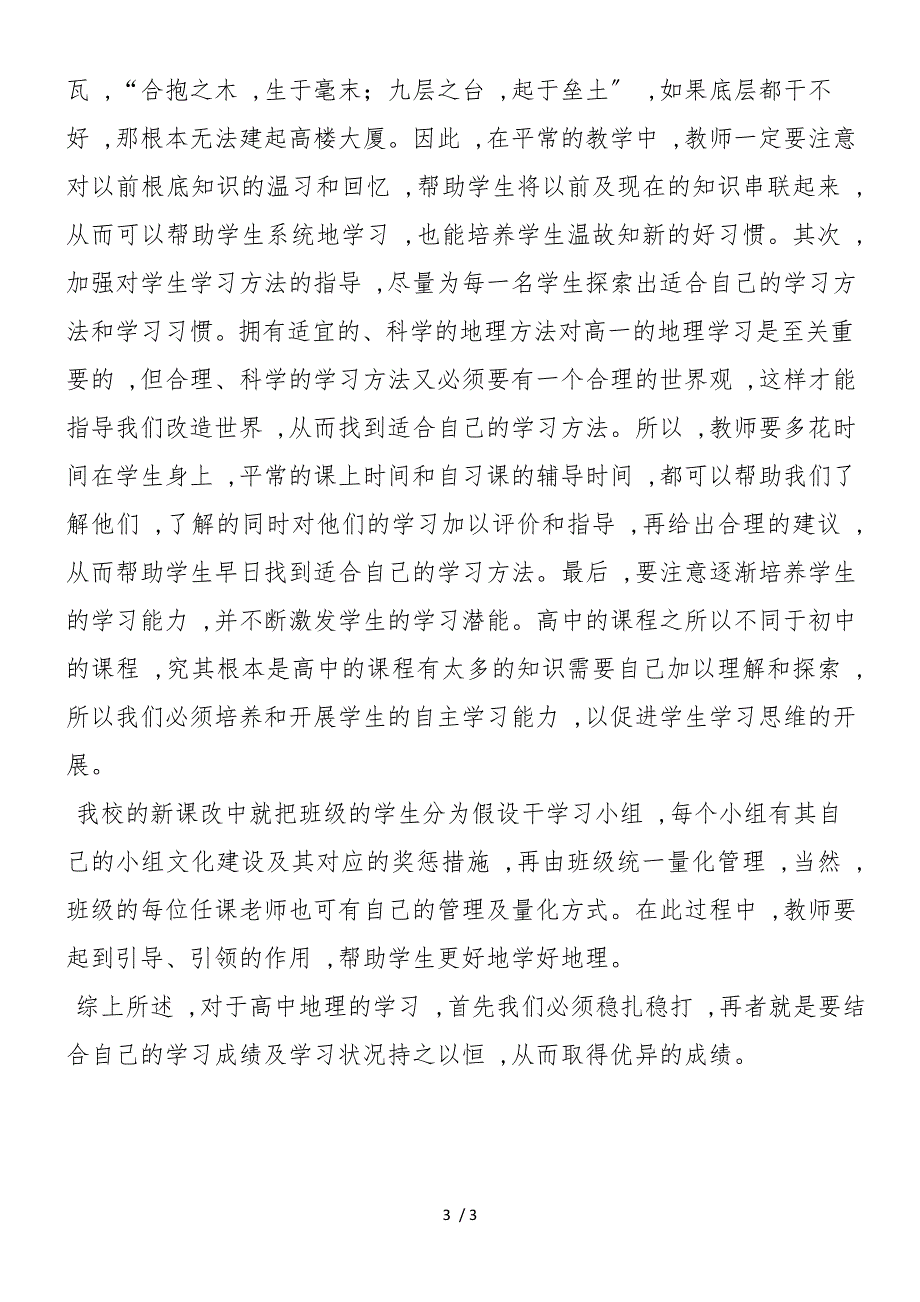 瓦 ,“合抱之木 ,生于毫末；九层之台 ,起于垒土〞 ,如果底层都干不
好 ,那根本无法建起高楼大厦。因此 ,在平常的教学中 ,教师一定要注意
对以前根底知识的温习和回忆 ,帮助学生将以前及现在的知识串联起来 ,
从而可以帮助学生系统地学习 ,也能培养学生温故知新的好习惯。其次 ,
加强对学生学习方法的指导 ,尽量为每一名学生探索出适合自己的学习方
法和学习习惯。拥有适宜的、科学的地理方法对高一的地理学习是至关重
要的 ,但合理、科学的学习方法又必须要有一个合理的世界观 ,这样才能
指导我们改造世界 ,从而找到适合自己的学习方法。所以 ,教师要多花时
间在学生身上 ,平常的课上时间和自习课的辅导时间 ,都可以帮助我们了
解他们 ,了解的同时对他们的学习加以评价和指导 ,再给出合理的建议 ,
从而帮助学生早日找到适合自己的学习方法。最后 ,要注意逐渐培养学生
的学习能力 ,并不断激发学生的学习潜能。高中的课程之所以不同于初中
的课程 ,究其根本是高中的课程有太多的知识需要自己加以理解和探索 ,
所以我们必须培养和开展学生的自主学习能力 ,以促进学生学习思维的开
展。
我校的新课改中就把班级的学生分为假设干学习小组 ,每个小组有其自
己的小组文化建设及其对应的奖惩措施 ,再由班级统一量化管理 ,当然 ,
班级的每位任课老师也可有自己的管理及量化方式。在此过程中 ,教师要
起到引导、引领的作用 ,帮助学生更好地学好地理。
综上所述 ,对于高中地理的学习 ,首先我们必须稳扎稳打 ,再者就是要结
合自己的学习成绩及学习状况持之以恒 ,从而取得优异的成绩。
3 / 3